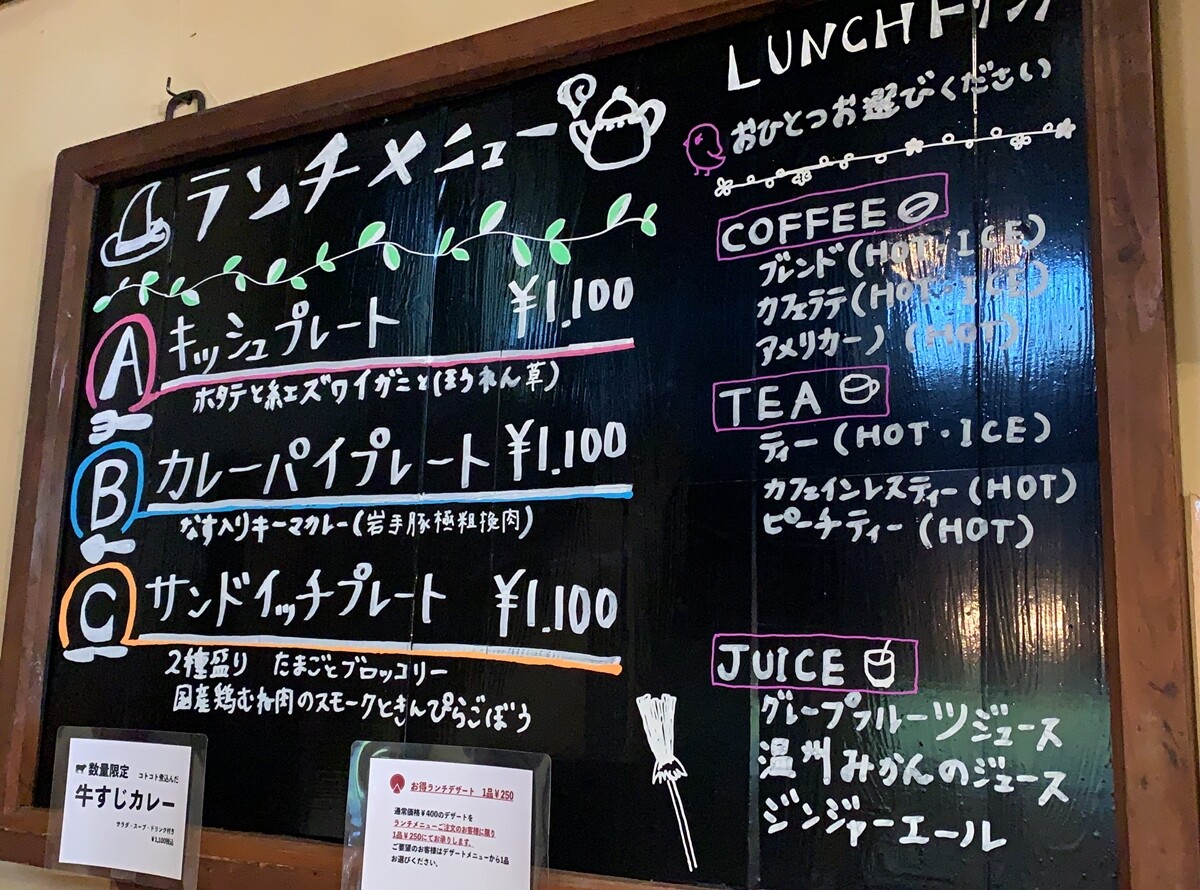 ランチメニュー
A キッシュプレート ¥1,100
ホタテと紅ズワイガニと(ほうれん草)
B カレーパイプレート ¥1,100
なす入りキーマカレー(岩手豚極粗挽肉)
C サンドイッチプレート ¥1,100
2種盛り たまごとブロッコリー
国産鶏むね肉のスモークときんぴらごぼう
数量限定 コトコト煮込んだ
牛すじカレー
サラダ・スープ・ドリンク付き
¥1,100税込
お得ランチデザート 1品¥250
通常価格¥400のデザートを
ランチメニューご注文のお客様に限り
1品¥250にてお承りします。
ご要望のお客様はデザートメニューから1品
お選びください。
LUNCHドリンク
おひとつお選びください
COFFEE
ブレンド(HOT・ICE)
カフェラテ(HOT・ICE)
アメリカーノ(HOT)
TEA
ティー(HOT・ICE)
カフェインレスティー(HOT)
ピーチティー(HOT)
JUICE
グレープフルーツジュース
温州みかんのジュース
ジンジャーエール